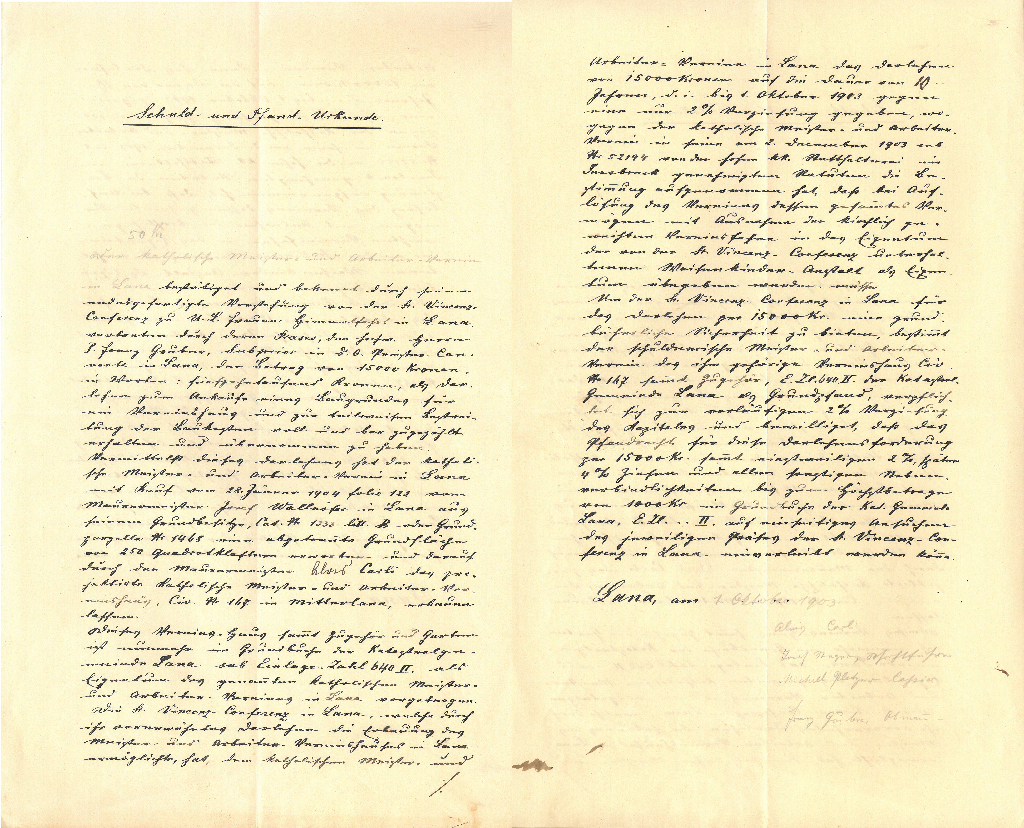 Schuld- und Pfand-Urkunde.
50 K
Der katholische Meister- und Arbeiter-Verein
in Lana bestätiget und bekennt durch seine
endesgefertigte Vorstehung von der St. Vincenz-
Conferenz zu U. L. Frauen Himmelfahrt in Lana
vertreten durch deren Praeses, den hochw. Herrn
P. Franz Gruber, Subprior im d. O. Priester-Con-
vente in Lana, den Betrag von 15000 Kronen,
in Worten: fünfzehntausend Kronen, als Dar-
lehen zum Ankaufe eines Baugrundes für
ein Vereinshaus und zur teilweisen Bestrei-
tung der Baukosten voll und bar zugezählt
erhalten und übernommen zu haben.
Vermittelst dieses Darlehens hat der katholi-
sche Meister- und Arbeiter-Verein in Lana
mit Kauf vom 28. Jänner 1904 folio 122 vom
Maurermeister Josef Wallnöfer in Lana aus
seinem Grundbesitze, Cat. № 1332 litt. B oder Grund-
parzelle № 1468 eine abgetrennte Grundfläche
von 250 Quadratklaftern erworben und darauf
durch den Maurermeister Alois Carli das pro-
jektirte katholische Meister- und Arbeiter-Ver-
einshaus, Civ. № 167 in Mitterlana, erbauen
lassen.
Dieses Vereins-Haus sammt Zugehör und Garten
ist nunmehr im Grundbuche der Katastralge-
meinde Lana sub Einlage-Zahl 640 II. als
Eigentum des genannten katholischen Meister-
und Arbeiter-Vereines in Lana vorgetragen.
Die St. Vincenz-Conferenz in Lana, welche durch
ihr vorerwähntes Darlehen die Erbauung des
Meister- und Arbeiter-Vereinshauses in Lana
ermöglichte, hat, dem katholischen Meister- und
Arbeiter-Vereine in Lana das Darlehen
von 15000 Kronen auf die Dauer von 10
Jahren, d. i. bis 1. Oktober 1903 gegen
eine nur 2% Verzinsung gegeben, wo-
gegen der katholische Meister- und Arbeiter-
Verein in seine am 2. December 1903 sub
№ 52194 von der hohen kk. Statthalterei in
Innsbruck genehmigten Statuten die Be-
stimmung aufgenommen hat, daß bei Auf-
lösung des Vereines dessen gesamtes Ver-
mögen mit Ausnahme der kirchlich ge-
weihten Vereinsfahne in das Eigentum
der von der St. Vincenz-Conferenz unterhal-
tenen Waisenkinder-Anstalt als Eigen-
tum übergeben werden müsse.
Um der St. Vincenz-Conferenz in Lana für
das Darlehen per 15000 Kr. eine grund-
bücherliche Sicherheit zu bieten, bestimmt
der schuldnerische Meister- und Arbeiter-
Verein das ihm gehörige Vereinshaus Civ.
№ 167 samt Zugehör, E. Zl. 640 II. der Katastral-
Gemeinde Lana als Grundpfand, verpflich-
tet sich zur vorläufigen 2% Verzinsung
des Kapitales und bewilliget, daß das
Pfandrecht für diese Darlehensforderung
per 15000 Kr. sammt einstweiligen 2%, später
4% Zinsen und allen sonstigen Neben-
verbindlichkeiten bis zum Höchstbetrage
von 1000 Kr im Grundbuche der Kat. Gemeinde
Lana, E. Zl. ... II. auf einseitiges Ansuchen
des jeweiligen Präses der St. Vincenz-Con-
ferenz in Lana einverleibt werden könne.
Lana, am 1. Oktober 1903.
Alois Carli
Schriftführer
Michael Platzer Cassier
Franz Gruber, Obmann